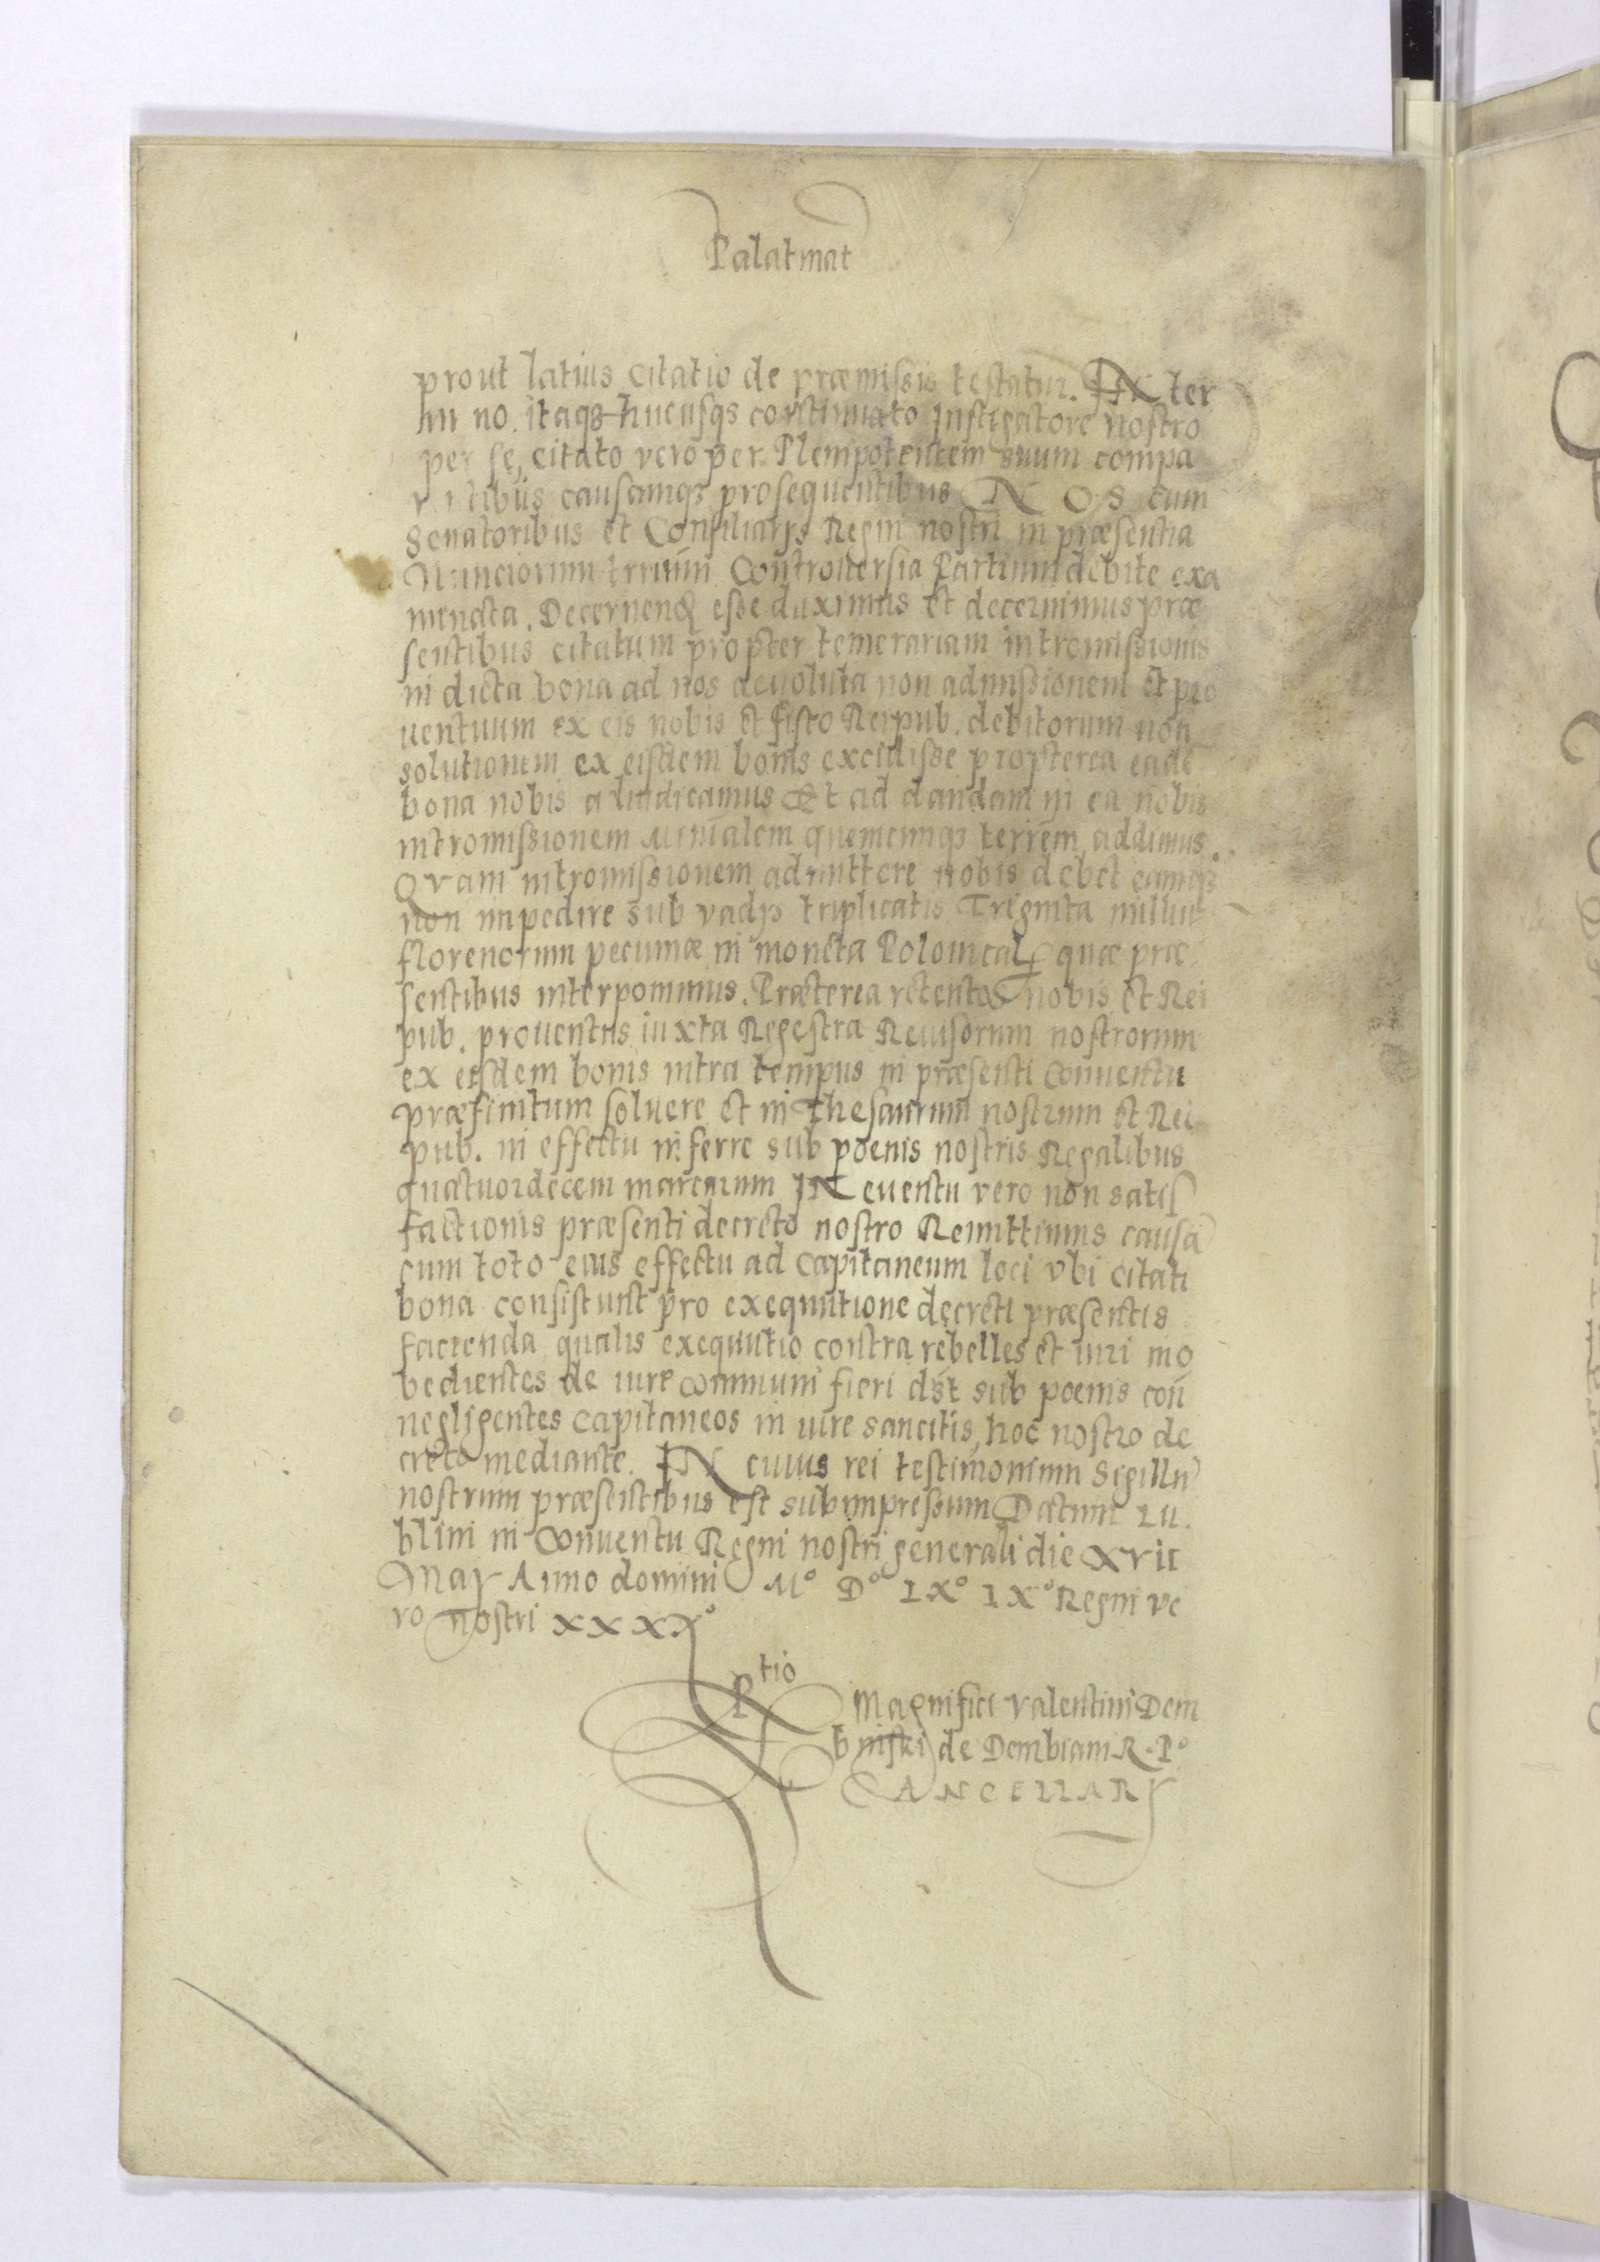 Palatinat
prout latius citatio de præmissis testatur. IN ter
mi no. itaqꝫ hucusqꝫ continuato Instigatore nostro
per se, citato vero per Plenipotentem suum compa
rentibus causamqꝫ prosequentibus NOS cum
Senatoribus et Consiliarijs Regni nostri in præsentia
Nunciorum trrūm Controuersia Partium debite exa
minata. Decernend esse duximus et decernimus præ
sentibus citatum propter temerariam intromissionis
in dicta bona ad nos deuoluta non admissionem et pro
uentuum ex eis nobis et fisco Reipub. debitorum non
solutionem ex eisdem bonis excidisse propterea eadē
bona nobis adiudicamus Et ad dandam in ea nobis
intromissionem Minialem quemcunqꝫ terrēm addimus.
Quam intromissionem admittere nobis debet eamqꝫ
non impedire sub vadijs triplicatis Triginta milliū
florenorum pecuniæ in moneta Polonical quæ præ
sentibus interponimus. Præterea retentos nobis et Rei
pub. prouentus iuxta Regestra Reuisorum nostrorum
ex eisdem bonis intra tempus in præsenti Conuentu
præfinitum soluere et in Thesaurum nostrum et Rei
pub. in effectu inferre sub poenis nostris Regalibus
quatuordecem marcarum IN euentu vero non satis
factionis præsenti decreto nostro Remittimus causā
cum toto eius effectu ad Capitaneum loci vbi citati
bona consistunt pro exequutione decreti præsentis
facienda qualis exequutio contra rebelles et iuri ino
bedientes de iure communi fieri dēt sub poenis con
negligentes Capitaneos in iure sancitis, hoc nostro de
creto mediante. IN cuius rei testimonium Sigillū
nostrum præsentibus est subimpressum Datum Lu
blini in Conuentu Regni nostri generali die XVII
May Anno domini Mº Dº LXº IXº Regni ve
ro nostri XXXXº
Rtio
Magnifici Valentini Dem
binski de Dembiani R. Pº
CANCELLARY